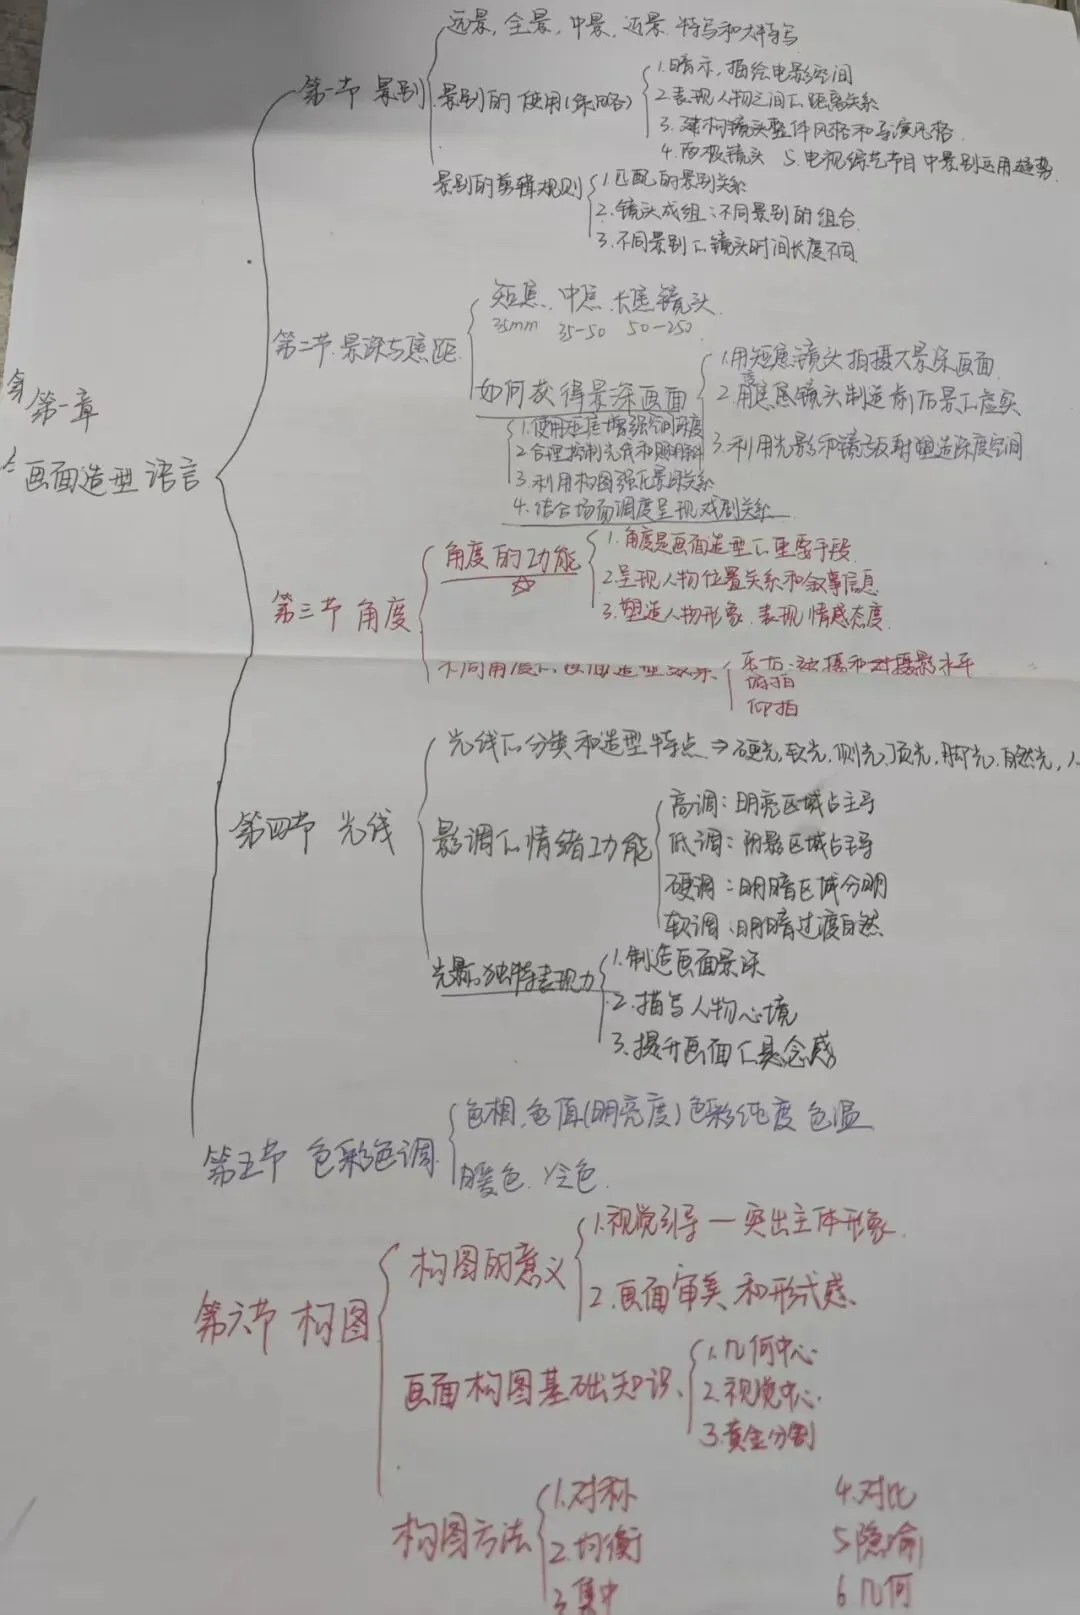 第一章
画面造型语言
第一节 景别
远景,全景,中景,近景.特写和大特写
景别的使用(策略)
1.暗示,描绘电影空间
2.表现人物之间的距离关系
3.建构镜头整体风格和导演风格
4.两极镜头 5.电视综艺节目中景别运用趋势
景别的剪辑规则
1.匹配的景别关系
2.镜头成组:不同景别的组合
3.不同景别的镜头时间长度不同
第二节.景深与焦距
短焦.中焦.长焦镜头
35mm 35-50 50-250
如何获得景深画面
1.用短焦镜头拍摄大景深画面
2.用焦镜头制造前后景的虚实
3.利用光影和镜头反射塑造深度空间
1.使用增强空间深度
2.合理控制光线和照明
3.利用构图强化景关系
4.结合场面调度呈现戏剧关系
第三节 角度
角度的功能
1.角度是画面造型的重要手段
2.呈现人物位置关系和叙事信息
3.塑造人物形象.表现情感态度
不同角度的画面造型效果
平拍:被摄和摄影水平
俯拍
仰拍
第四节 光线
光线的分类和造型特点⇒硬光,软光,侧光,顶光,脚光,自然光,人
影调的情绪功能
高调:明亮区域占主导
低调:阴影区域占主导
硬调:明暗区域分明
软调:明暗过渡自然
光影的独特表现力
1.制造画面景深
2.描写人物心境
3.提升画面的悬念感
第五节 色彩色调
色相.色值(明亮度)色彩纯度 色温
暖色.冷色
第六节 构图
构图的意义
1.视觉引导—突出主体形象
2.画面审美和形式感
画面构图基础知识
1.几何中心
2.视觉中心
3.黄金分割
构图方法
1.对称
2.均衡
3.集中
4.对比
5.隐喻
6几何